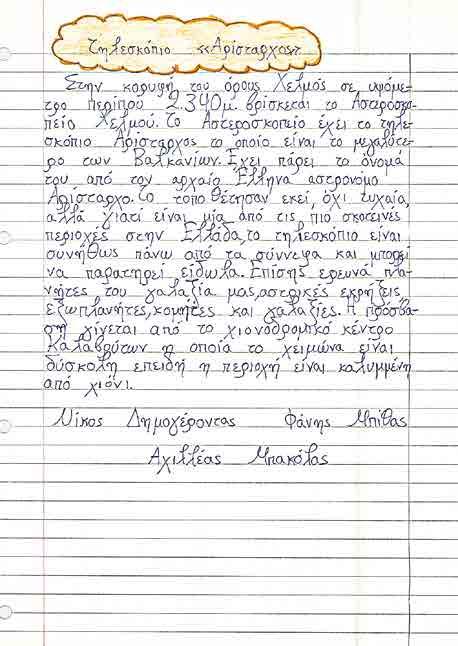 Τηλεσκόπιο «Αρίσταρχος»
Στην κορυφή του όρους Χελμός σε υψόμε-
τρο περίπου 2.340μ. βρίσκεται το Αστεροσκο-
πείο Χελμού. Το Αστεροσκοπείο έχει το τηλε-
σκόπιο Αρίσταρχος το οποίο είναι το μεγαλύτε-
ρο των Βαλκανίων. Έχει πάρει το όνομά
του από τον αρχαίο Έλληνα αστρονόμο
Αρίσταρχο. Το τοποθέτησαν εκεί, όχι τυχαία,
αλλά γιατί είναι μία από τις πιο σκοτεινές
περιοχές στην Ελλάδα, το τηλεσκόπιο είναι
συνήθως πάνω από τα σύννεφα και μπορεί
να παρατηρεί είδωλα. Επίσης ερευνά πλα-
νήτες του γαλαξία μας, αστρικές εκρήξεις,
εξωπλανήτες, κομήτες και γαλαξίες. Η πρόσβα-
ση γίνεται από το χιονοδρομικό κέντρο
Καλαβρύτων η οποία το χειμώνα είναι
δύσκολη επειδή η περιοχή είναι καλυμμένη
από χιόνι.
Νίκος Δημογέροντας Φάνης Μπίθας
Αχιλλέας Μπακόλας